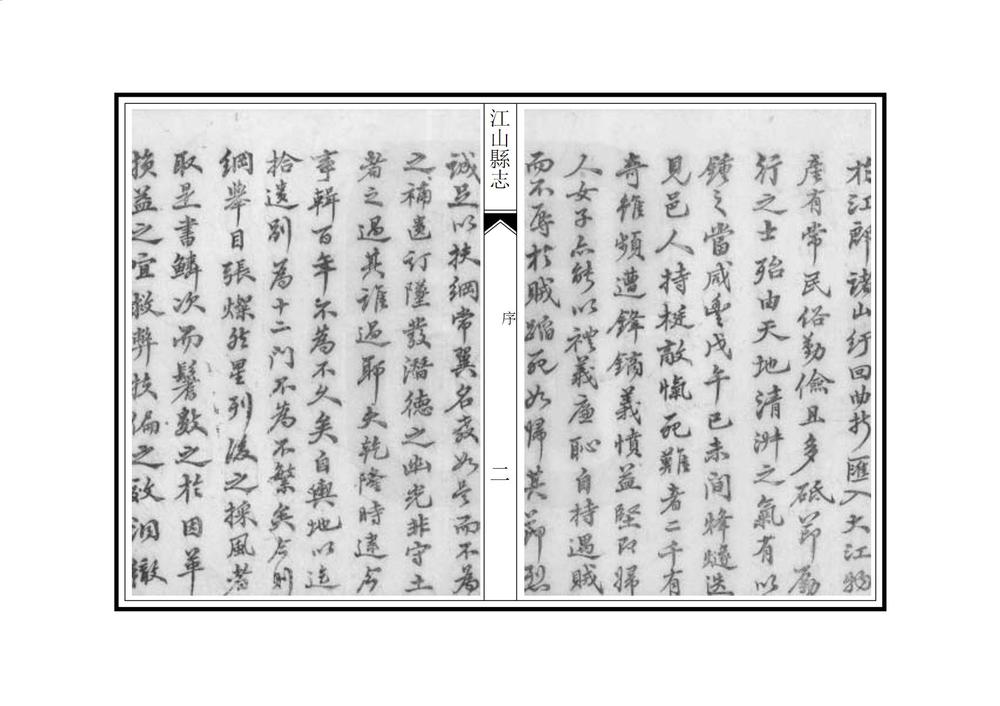 於江郎諸山紆回曲折匯入大江物
產有常民俗勤儉且多砥節勵
行之士殆由天地清淑之氣有以
鍾之當咸豐戊午己未間烽燧迭
見邑人持梃敵愾死難者二千有
奇雖頻遭鋒鏑義憤益堅即婦
人女子亦能以禮義廉恥自持遇賊
而不辱於賊蹈死如歸其節烈
江山縣志
序
二
誠足以扶綱常翼名教如是而不為
之補遺訂墜發潛德之幽光非守土
者之過其誰過耶夫乾隆時逮今
事輯百年不為不久矣自輿地以迄
拾遺別為十二門不為不繁矣今則
綱舉目張燦然星列後之採風者
取是書鱗次而鬈數之於因革
損益之宜救弊扶偏之政洞徹